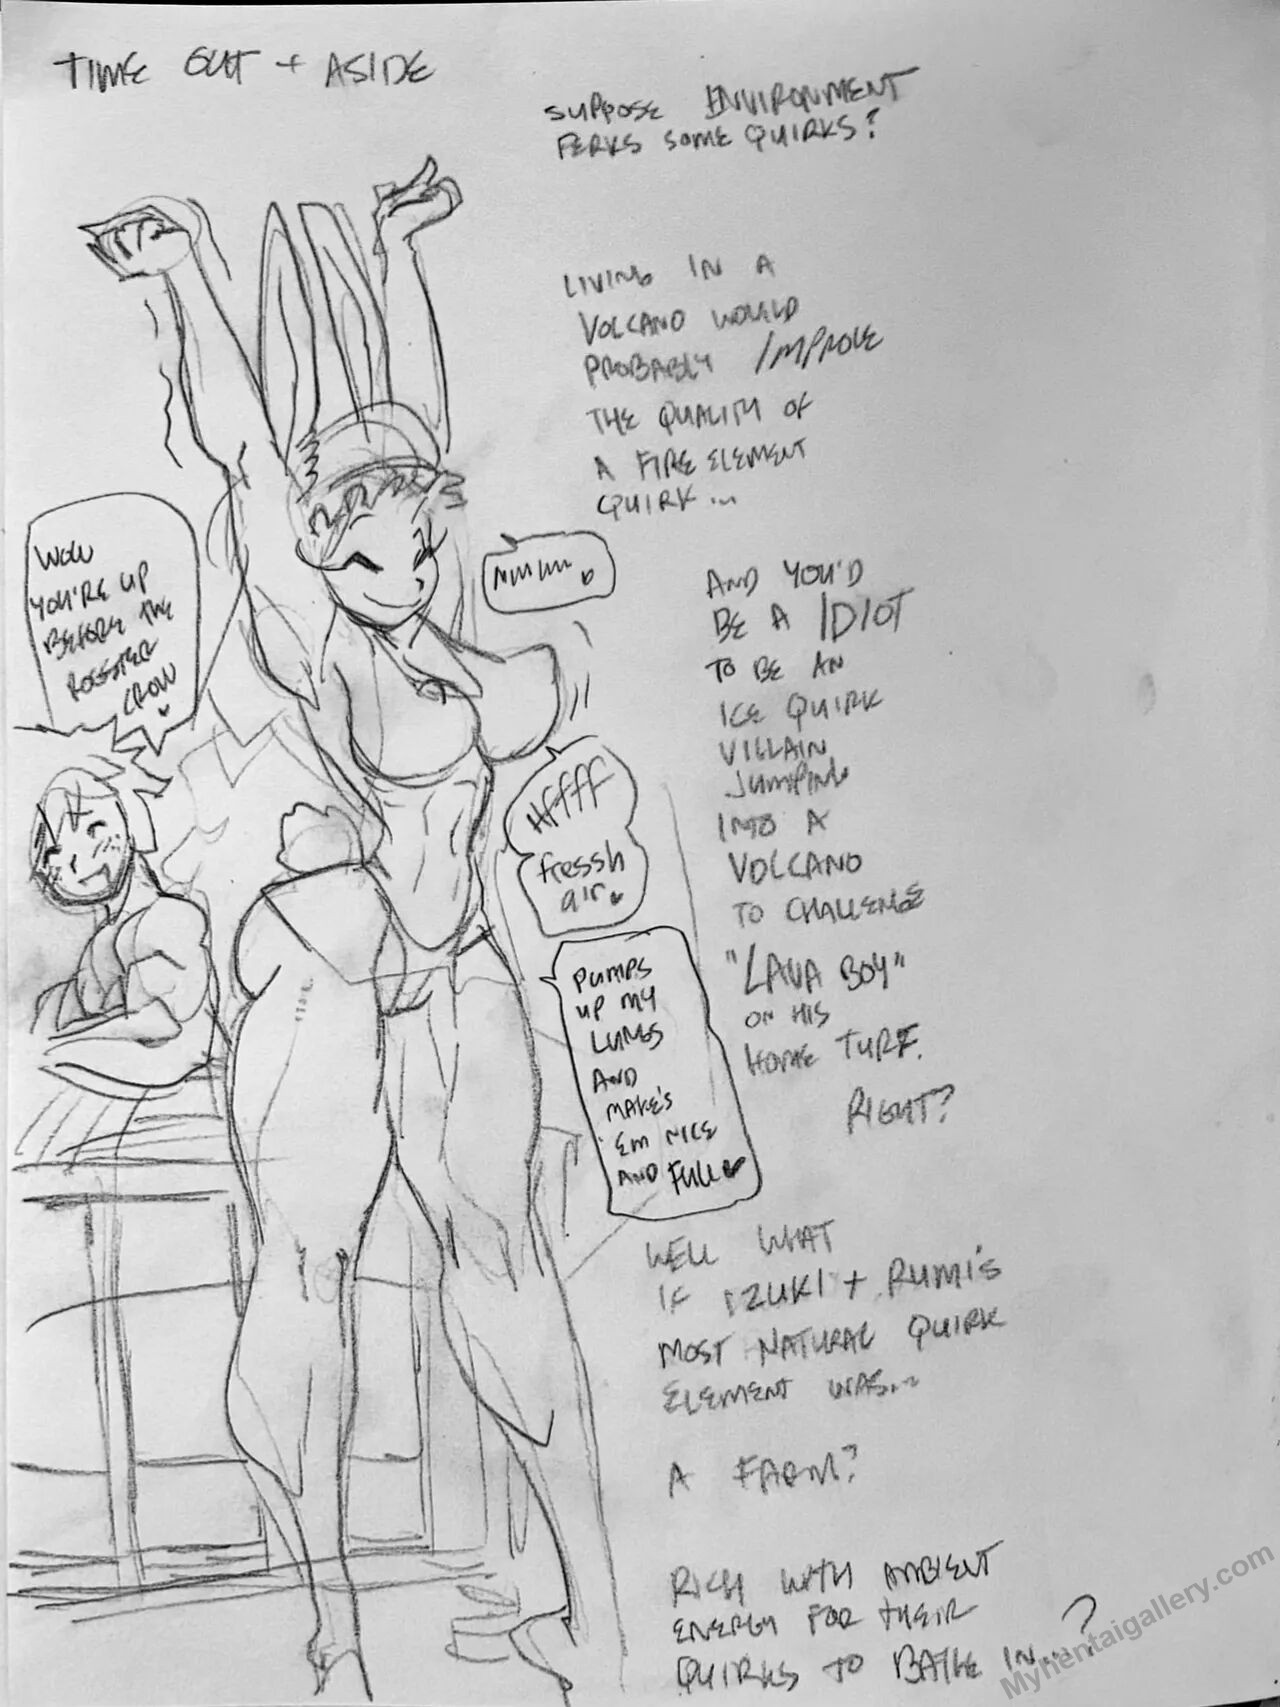 TIME OUT + ASIDE
SUPPOSE ENVIRONMENT
PERKS SOME QUIRKS?
LIVING IN A
VOLCANO WOULD
PROBABLY IMPROVE
THE QUALITY OF
A FIRE ELEMENT
QUIRK...
WOW
YOU'RE UP
BEFORE THE
ROOSTER
CROW
MMMM
AND YOU'D
BE A IDIOT
TO BE AN
ICE QUIRK
VILLAIN
JUMPING
INTO A
VOLCANO
TO CHALLENGE
"LAVA BOY"
ON HIS
HOME TURF.
RIGHT?
HFFFF
fresssh
air
PUMPS
UP MY
LUNGS
AND
MAKE'S
'EM NICE
AND FULL
WELL WHAT
IF IZUKI + RUMI'S
MOST NATURAL QUIRK
ELEMENT WAS...
A FARM?
RICH WITH AMBIENT
ENERGY FOR THEIR
QUIRKS TO BATHE IN...?
Myhentaigallery.com